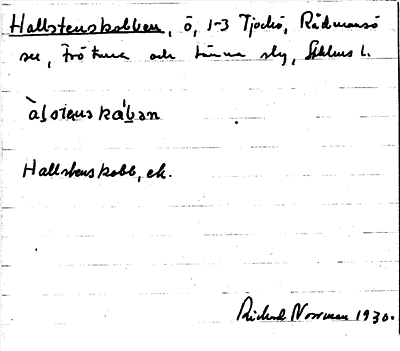 Hallstenskobben, ö, 1-3 Tjockö, Rådmansö
sn, Frötuna och Länna slg, Sthlms l.
àlstenskåb̀ən
Hallstenskobb, ek.
Richard Norrman 1930.